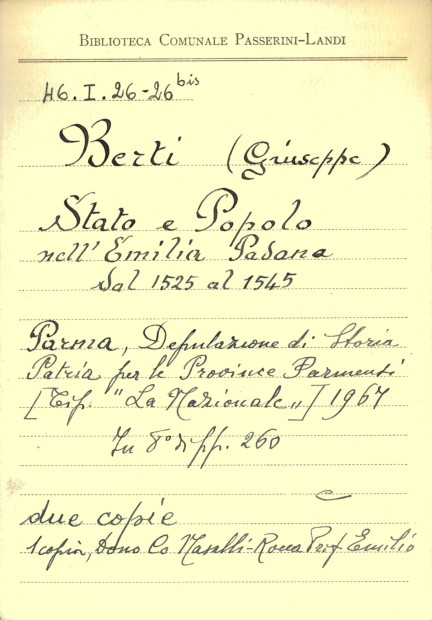 BIBLIOTECA COMUNALE PASSERINI-LANDI
46.I.26-26 bis
Berti (Giuseppe)
Stato e Popolo
nell'Emilia Padana
dal 1525 al 1545
Parma, Deputazione di Storia
Patria per le Province Parmensi
[Tip. "La Nazionale"] 1967
In 8° di pp. 260
due copie
1 copia, Dono Co Nasalli-Rocca Prof Emilio